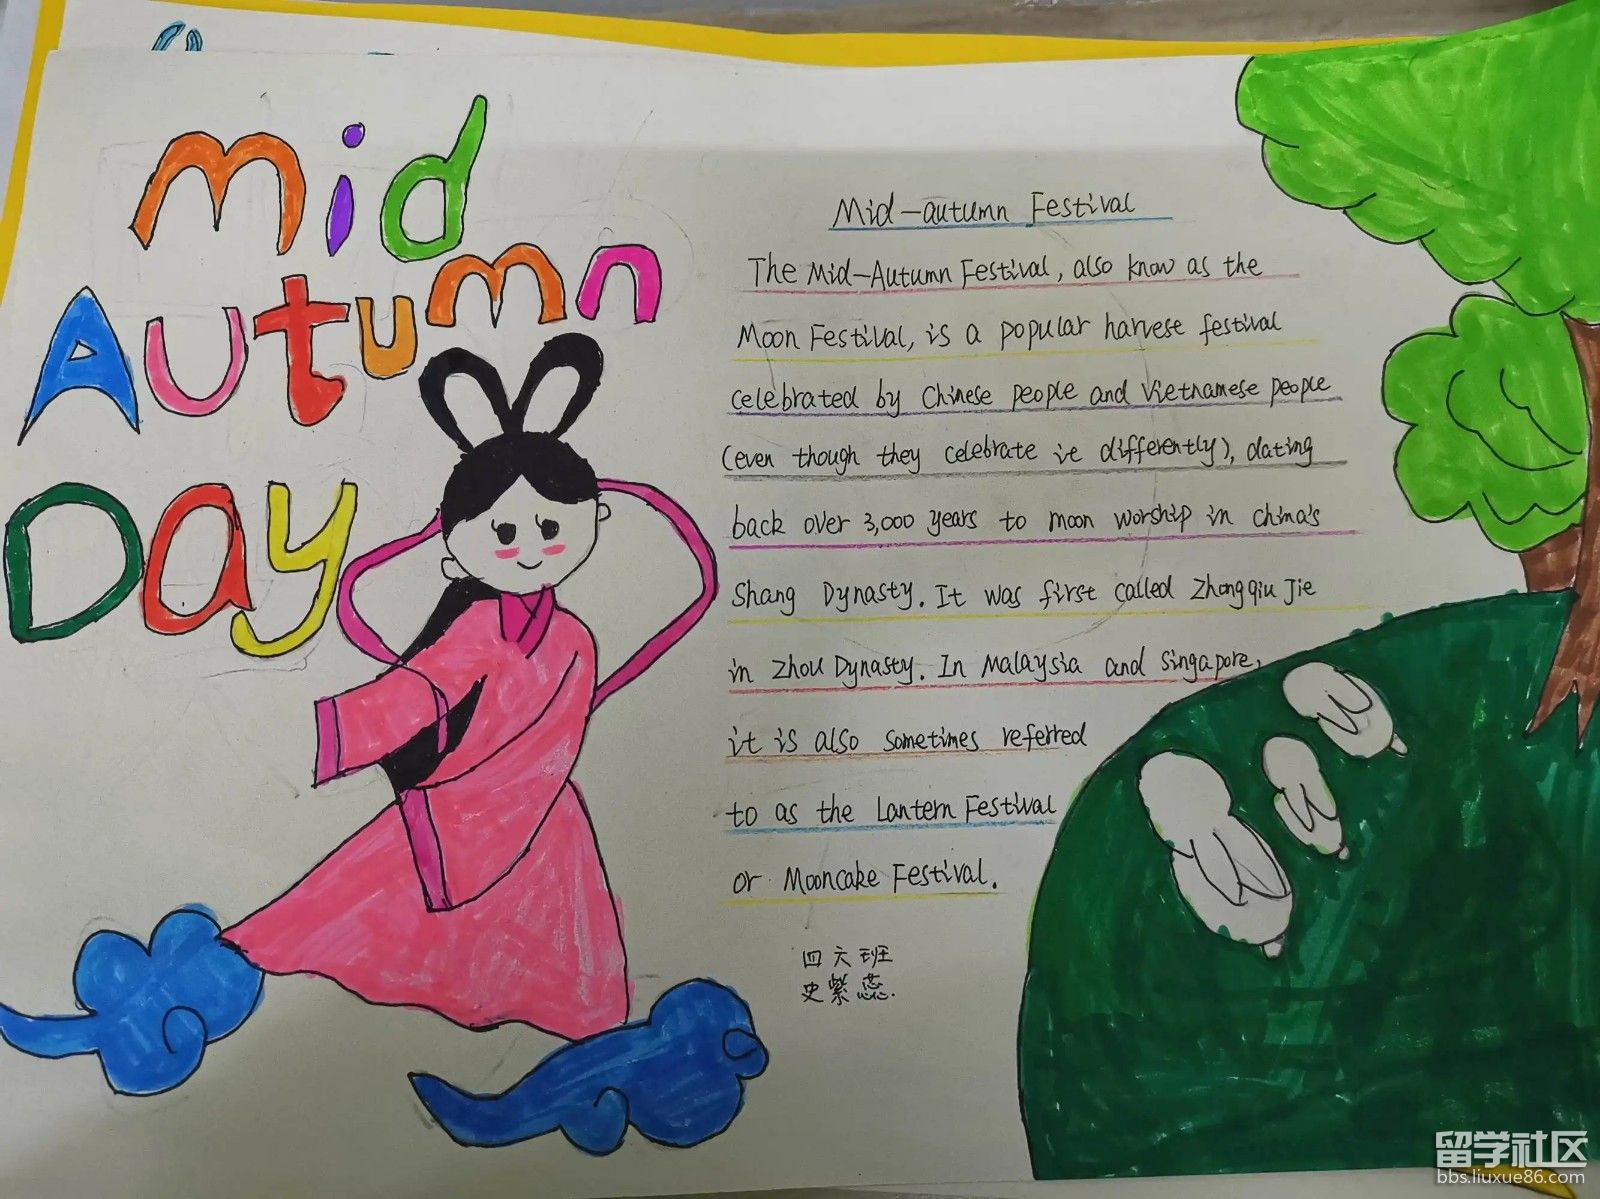 Mid
Autumn
Day
Mid-autumn Festival
The Mid-Autumn Festival, also know as the
Moon Festival, is a popular harvese festival
celebrated by Chinese people and Vietnamese people
(even though they celebrate ie differently), dating
back over 3,000 years to moon worship in China's
Shang Dynasty. It was first called Zhongqiu Jie
in Zhou Dynasty. In Malaysia and Singapore,
it is also sometimes referred
to as the Lantern Festival
or Mooncake Festival.
四六班
史紫蕊.
留学社区
bbs.liuxue86.com